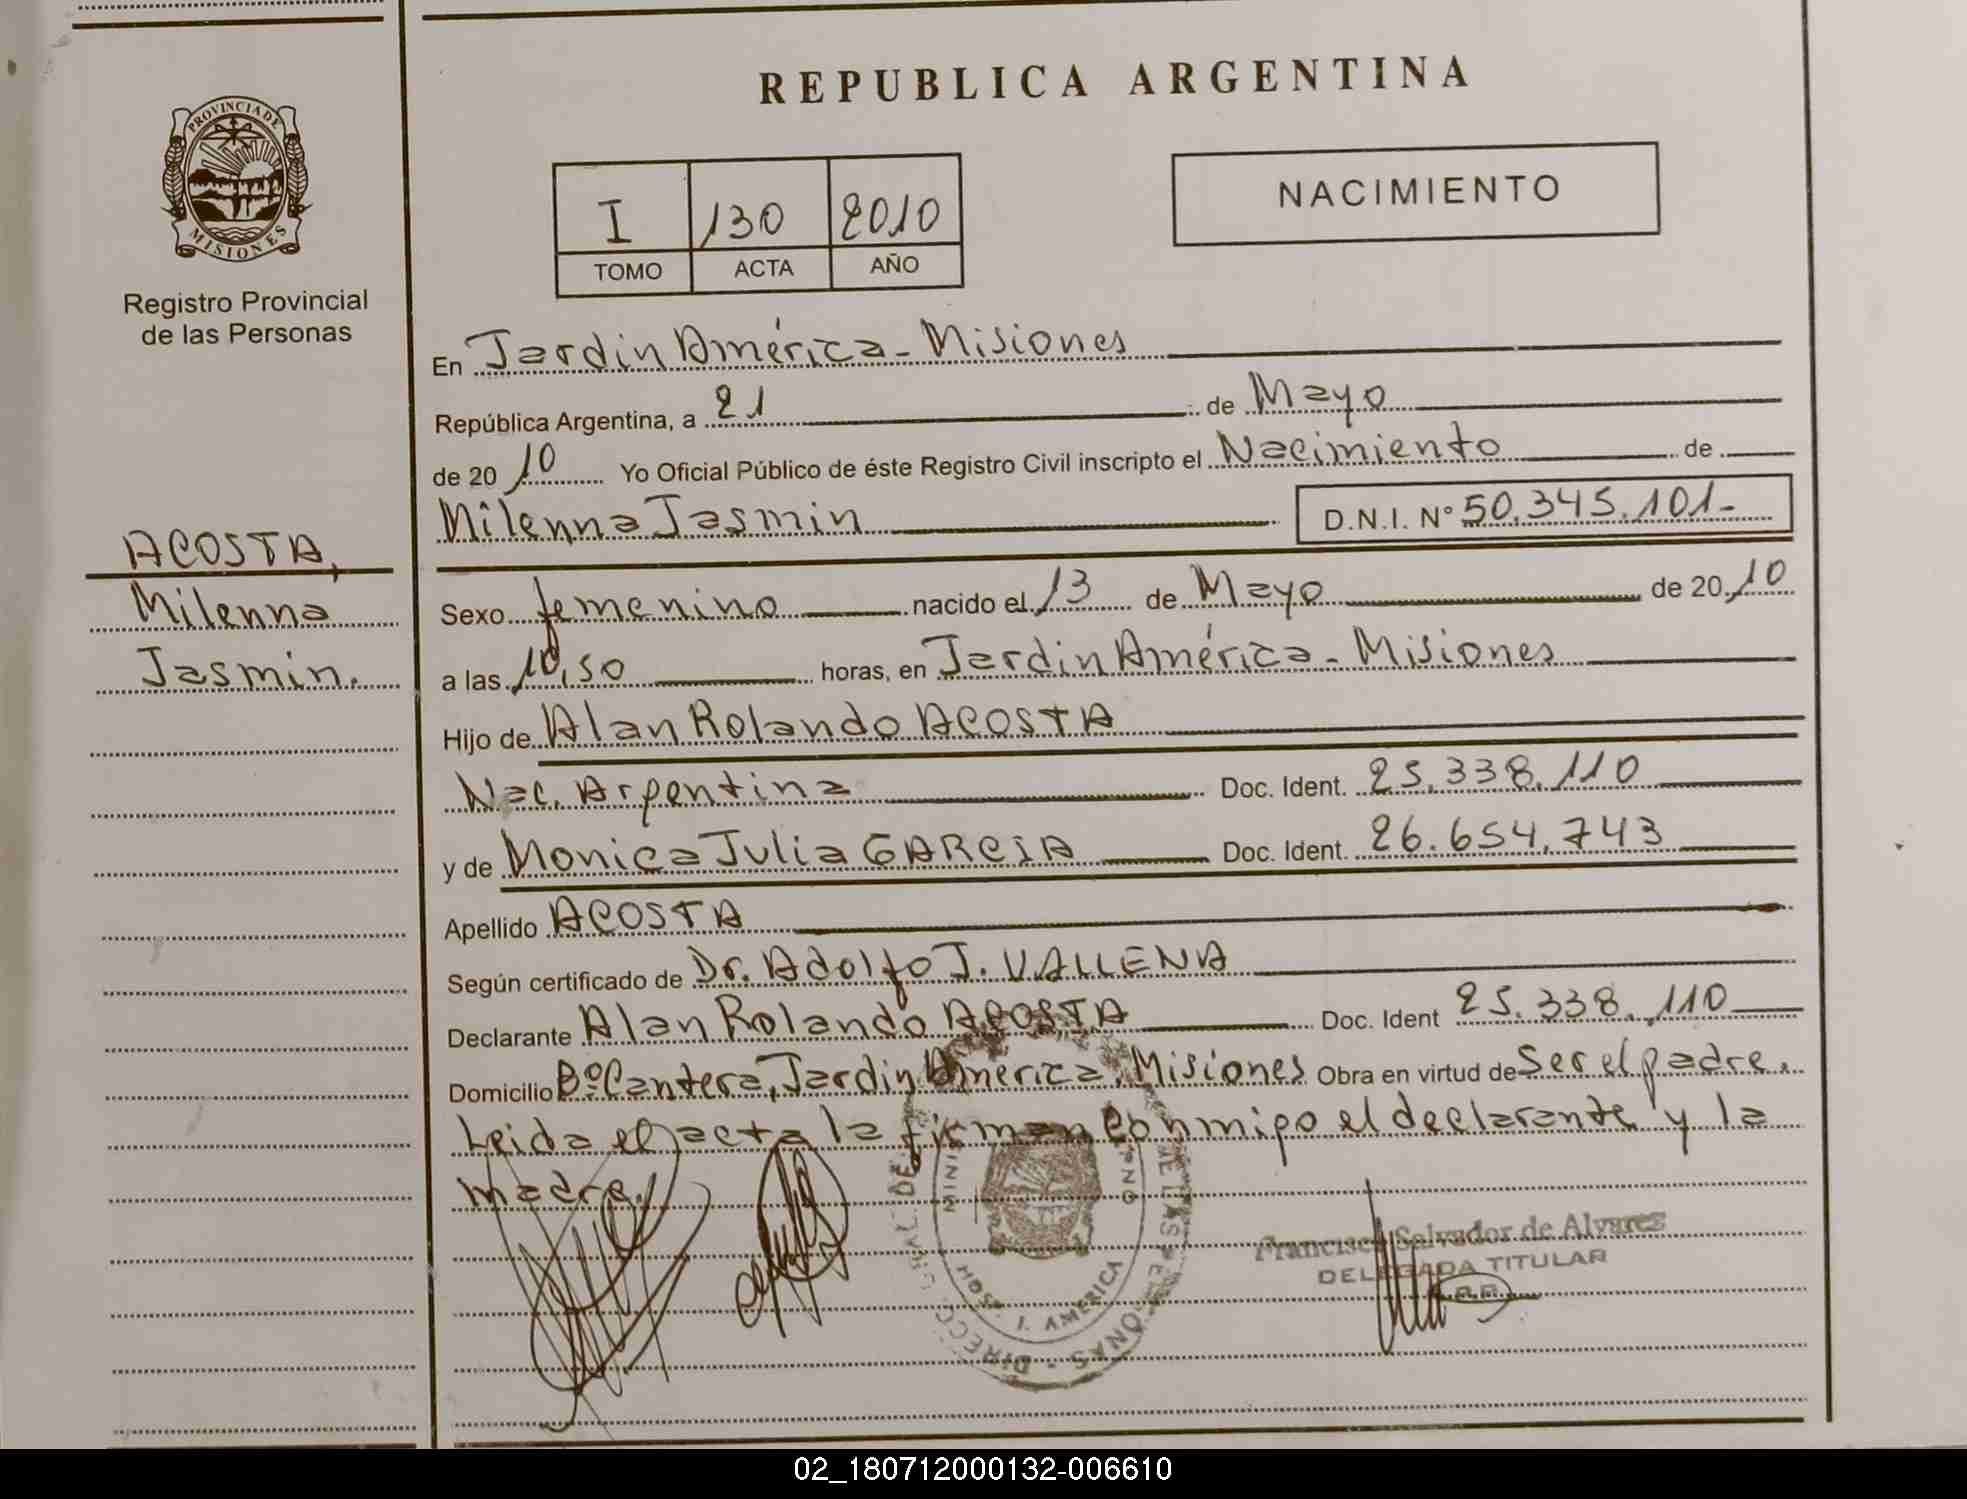 REPUBLICA ARGENTINA
PROVINCIA DE
MISIONES
Registro Provincial
de las Personas
I 130 2010
TOMO ACTA AÑO
NACIMIENTO
En Jardin América - Misiones
República Argentina, a 21 de Mayo
de 2010 Yo Oficial Público de éste Registro Civil inscripto el Nacimiento de
Milenna Jasmin D.N.I. Nº 50.345.101-
ACOSTA,
Milenna
Jasmin.
Sexo femenino nacido el 13 de Mayo de 2010
a las 10,50 horas, en Jardin América - Misiones
Hijo de Alan Rolando ACOSTA
Nac. Argentina Doc. Ident. 25.338.110
y de Monica Julia GARCIA Doc. Ident. 26.654.743
Apellido ACOSTA
Según certificado de Dr. Adolfo J. VALLENA
Declarante Alan Rolando ACOSTA Doc. Ident 25.338.110
Domicilio Bº Cantera, Jardin América, Misiones Obra en virtud de Ser el padre.
Leida el acta la firman conmigo el declarante y la
madre.
HOSP. J. AMERICA
Salvador de Alvarez
DELEGADA TITULAR
02_180712000132-006610